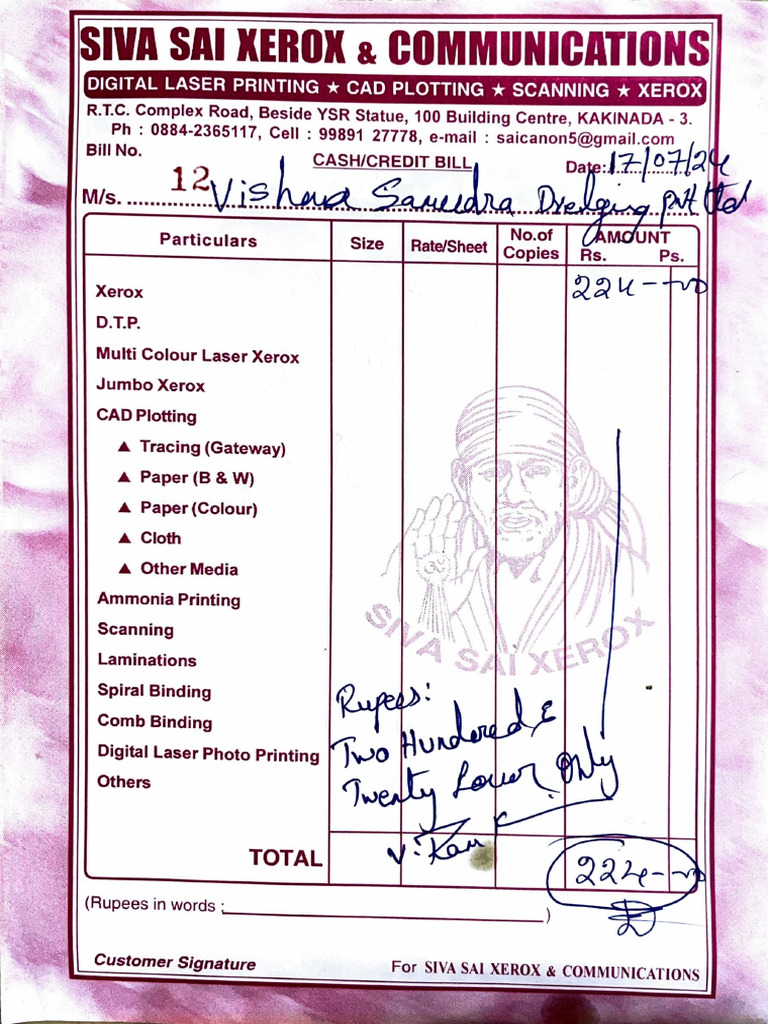 SIVA SAI XEROX & COMMUNICATIONS
DIGITAL LASER PRINTING ★ CAD PLOTTING ★ SCANNING ★ XEROX
R.T.C. Complex Road, Beside YSR Statue, 100 Building Centre, KAKINADA - 3.
Ph : 0884-2365117, Cell : 99891 27778, e-mail : saicanon5@gmail.com
Bill No. 12 CASH/CREDIT BILL Date: 17/07/24
M/s. Vishwa Samudra Dredging Pvt Ltd
Particulars Size Rate/Sheet No.of Copies AMOUNT Rs. Ps.
Xerox 224-00
D.T.P.
Multi Colour Laser Xerox
Jumbo Xerox
CAD Plotting
▲ Tracing (Gateway)
▲ Paper (B & W)
▲ Paper (Colour)
▲ Cloth
▲ Other Media
Ammonia Printing
SIVA SAI XEROX
Scanning
Laminations
Spiral Binding
Comb Binding
Digital Laser Photo Printing
Others
Rupees:
Two Hundered &
Twenty Four Only
TOTAL 224-00
(Rupees in words : )
Customer Signature For SIVA SAI XEROX & COMMUNICATIONS